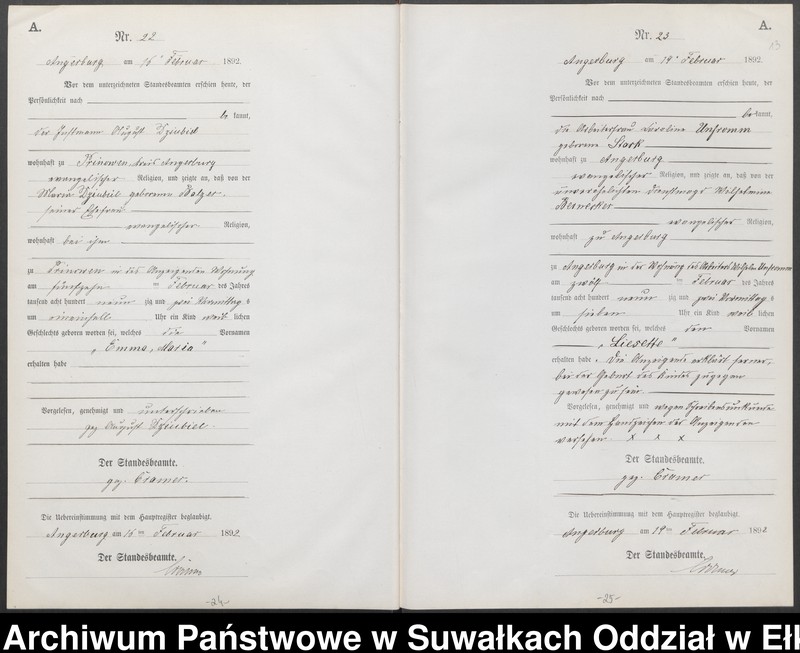 A.
Nr. 22
Angerburg am 16. Februar 1892.
Vor dem unterzeichneten Standesbeamten erschien heute, der
Persönlichkeit nach
be kannt,
der Instmann August Dziubiel
wohnhaft zu Prinowen Kreis Angerburg
evangelischer Religion, und zeigte an, daß von der
Maria Dziubiel geborenen Balzer,
seiner Ehefrau
evangelischer Religion,
wohnhaft bei ihm
zu Prinowen in des Anzeigenden Wohnung
am fünfzehn ten Februar des Jahres
tausend acht hundert neun zig und zwei Vormittags
um eineinhalb Uhr ein Kind weib lichen
Geschlechts geboren worden sei, welches die Vornamen
„Emma, Maria"
erhalten habe
Vorgelesen, genehmigt und unterschrieben
gez. August Dziubiel.
Der Standesbeamte.
gez. Cramer.
Die Uebereinstimmung mit dem Hauptregister beglaubigt.
Angerburg am 16ten Februar 1892
Der Standesbeamte.
Cramer
-24-
A.
Nr. 23
Angerburg am 19. Februar 1892.
Vor dem unterzeichneten Standesbeamten erschien heute, der
Persönlichkeit nach
be kannt,
die Arbeiterfrau Caroline Unfromm
geborene Stark
wohnhaft zu Angerburg
evangelischer Religion, und zeigte an, daß von der
unverehelichten Dienstmagd Wilhelmine
Bernecker
evangelischer Religion,
wohnhaft zu Angerburg
zu Angerburg in der Wohnung des Arbeiters Wilhelm Unfromm
am zwölf ten Februar des Jahres
tausend acht hundert neun zig und zwei Vormittags
um sieben Uhr ein Kind weib lichen
Geschlechts geboren worden sei, welches den Vornamen
„Liesette"
erhalten habe. Die Anzeigende erklärt ferner,
bei der Geburt des Kindes zugegen
gewesen zu sein.
Vorgelesen, genehmigt und wegen Schreibensunkunde
mit dem Handzeichen der Anzeigenden
versehen. x x x
Der Standesbeamte.
gez. Cramer
Die Uebereinstimmung mit dem Hauptregister beglaubigt.
Angerburg am 19ten Februar 1892
Der Standesbeamte.
Cramer
-25-
Archiwum Państwowe w Suwałkach Oddział w Ełk